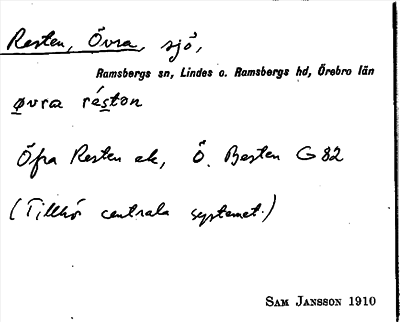 Resten, Övra, sjö,
Ramsbergs sn, Lindes o. Ramsbergs hd, Örebro län
øvra réston
Öfra Resten ek, Ö. Besten G 82
(Tillhör centrala systemet.)
SAM JANSSON 1910